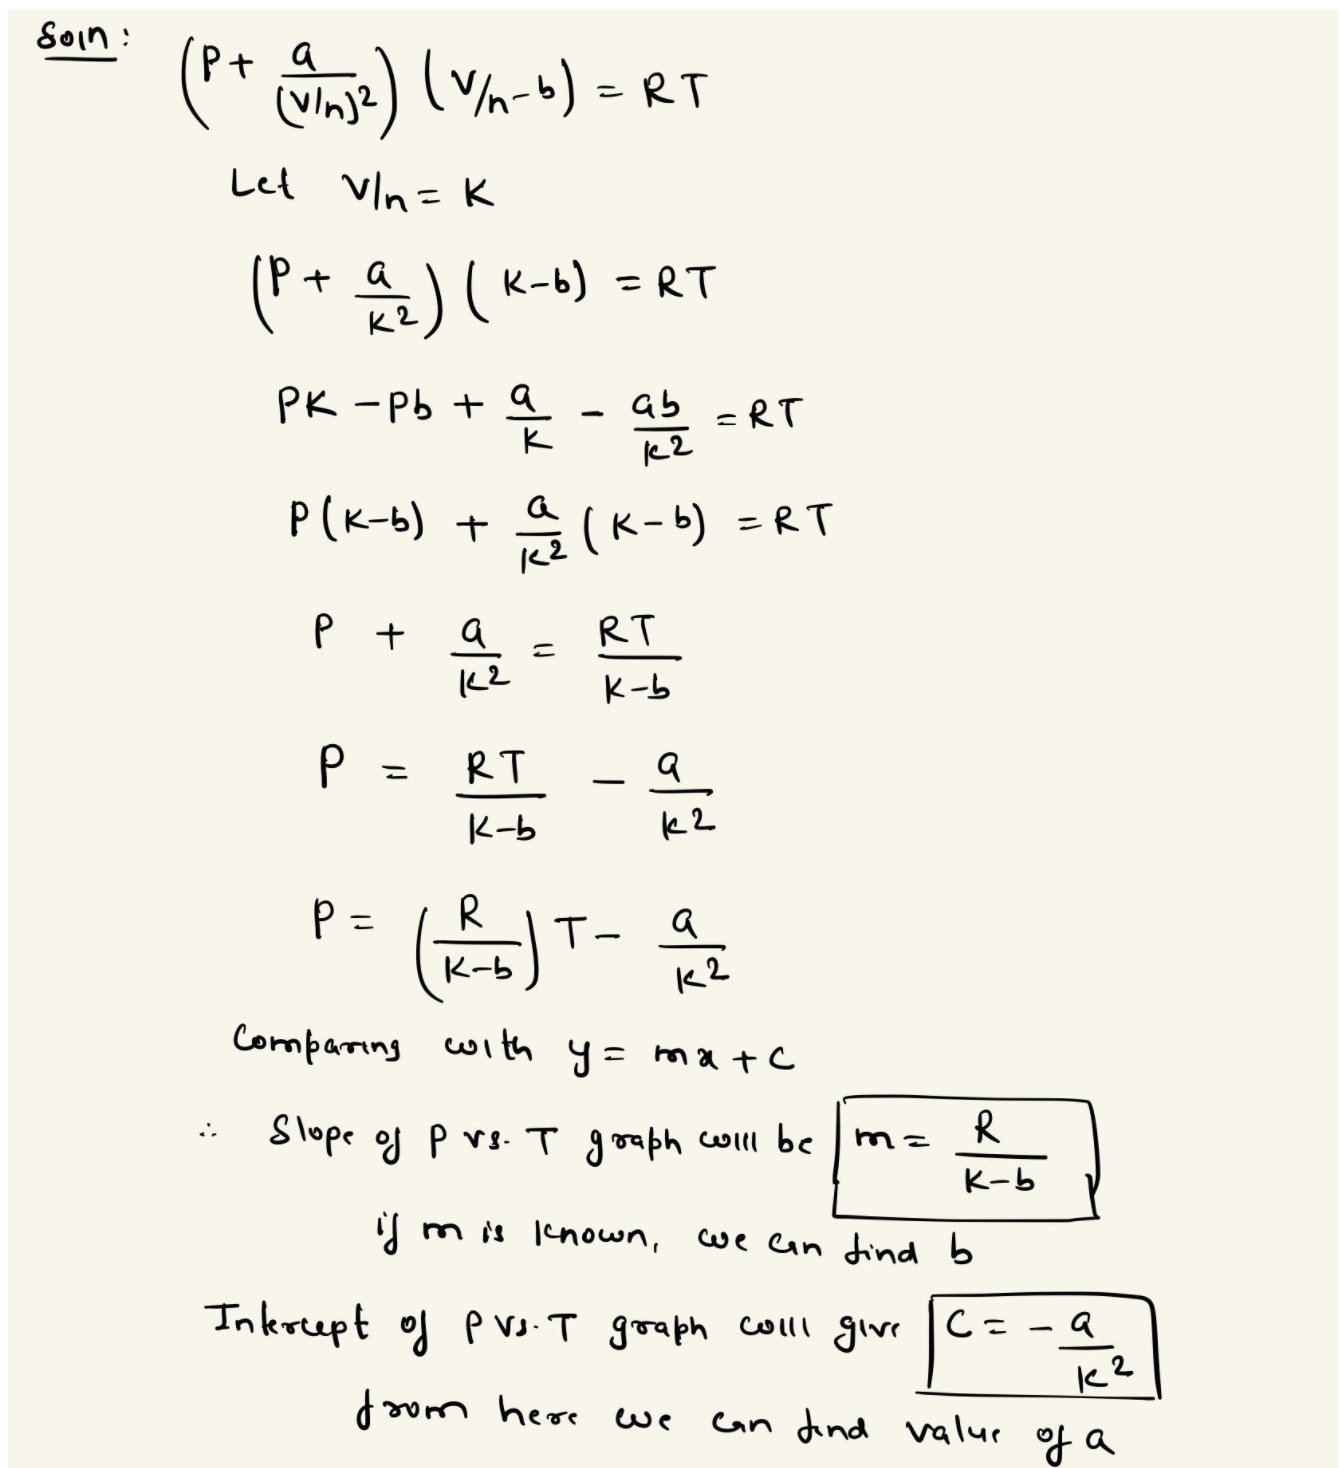 Soln:
(P + a/(V/n)²) (V/n - b) = RT
Let V/n = K
(P + a/K²) (K-b) = RT
PK - Pb + a/K - ab/K² = RT
P(K-b) + a/K² (K-b) = RT
P + a/K² = RT/K-b
P = RT/K-b - a/K²
P = (R/K-b) T - a/K²
Comparing with y = mx + c
∴ Slope of P vs. T graph will be m = R/K-b
if m is known, we can find b
Intercept of P vs. T graph will give C = - a/K²
from here we can find value of a